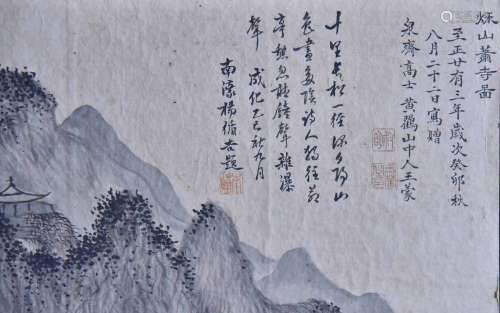 秌山蕭寺啚
至正廿有三年歲次癸卯秋
八月二十二日寫贈
泉齊高士 黃鶴山中人王蒙
十里長松一徑深 夕陽山
色畫多陰 詩人獨往
亭 鐘聲雜瀑
聲 成化乙巳秋九月
南濠楊循吉題